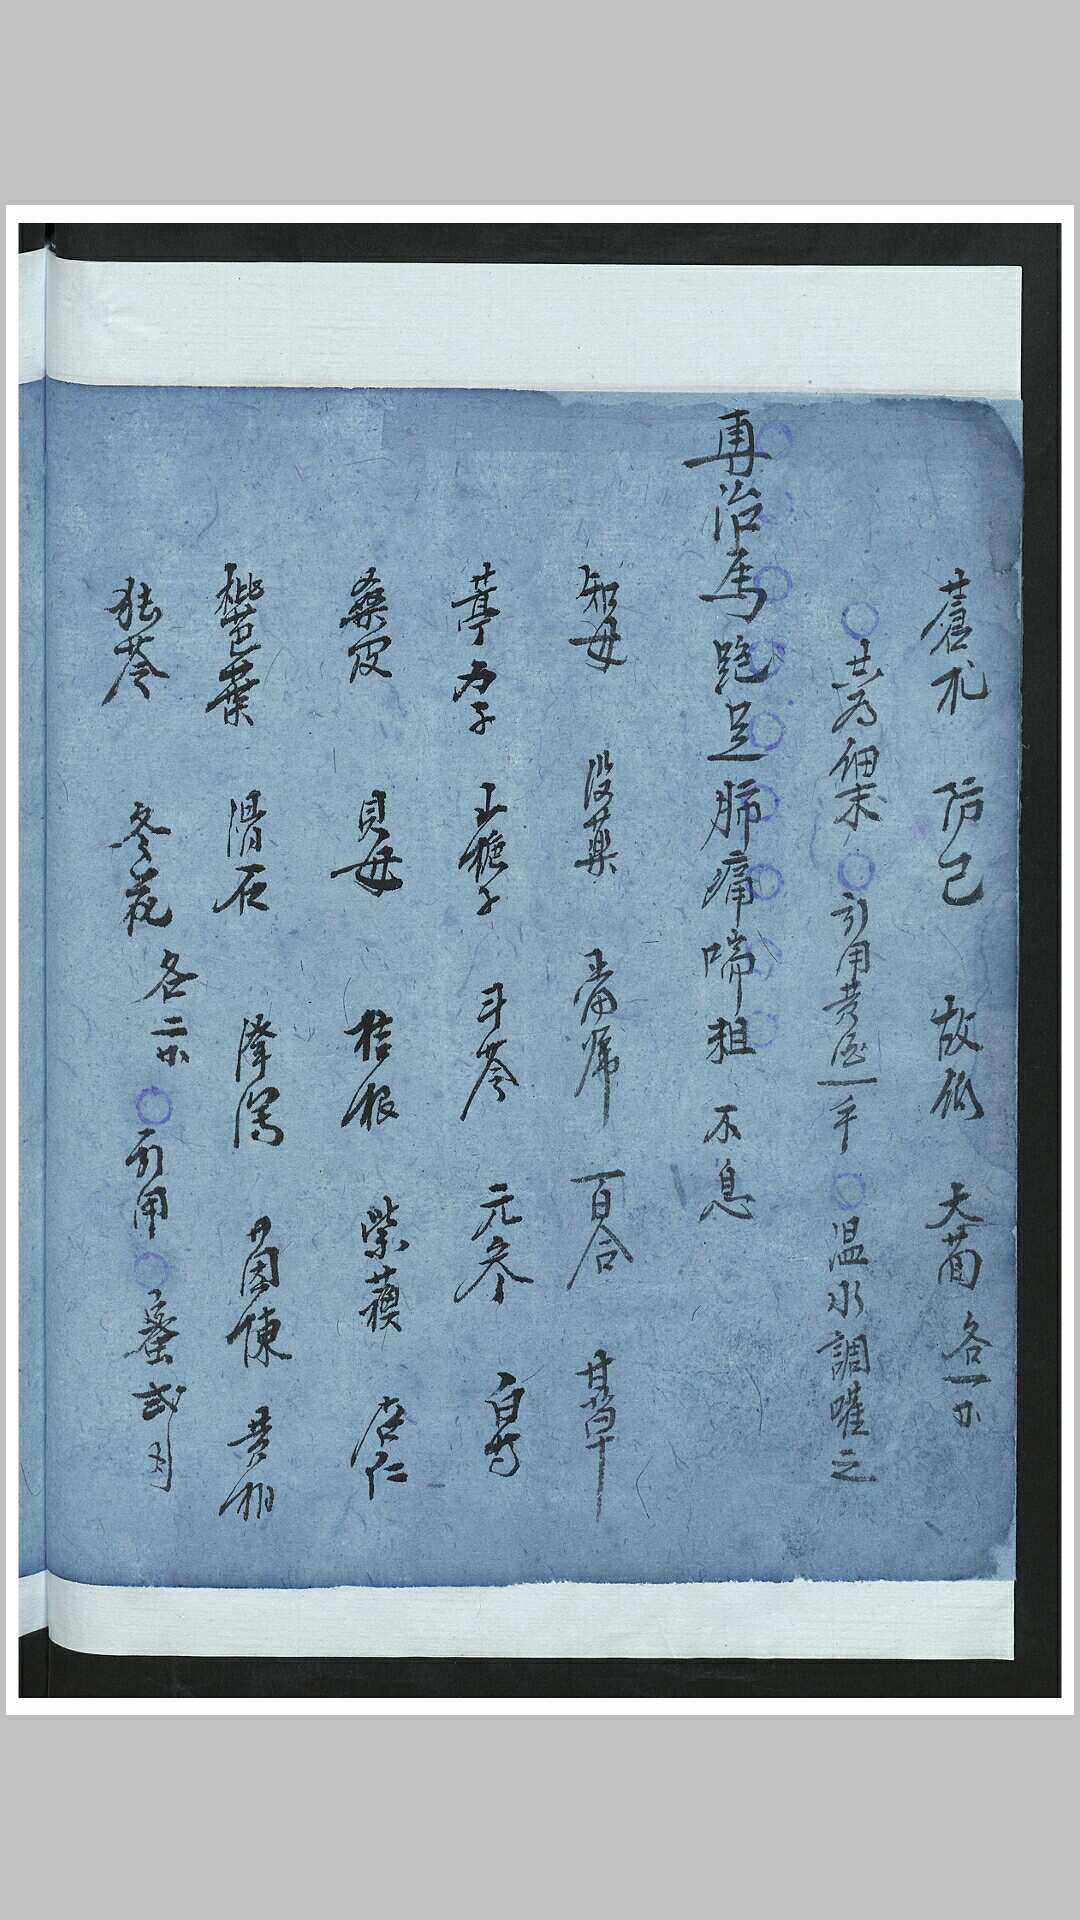 蒼朮 防己 故紙 大茴 各一
共為細末 引用黄酒一 温水調嚾之
再治馬跑足肺痛喘粗不息
知母 没藥 當歸 百合 甘草
葶力子 山梔子 斗苓 元参 白芍
桑皮 貝母 桔根 紫蘓 杏仁
枇芭葉 滑石 澤瀉 茵陳 黄柏
苓 冬花 各二 引用 蜜弍